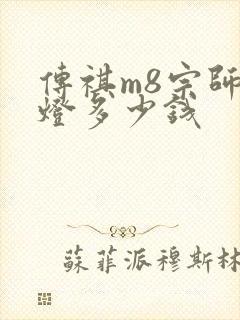 傳祺m8宗師
燈多少錢
蘇菲派穆斯林